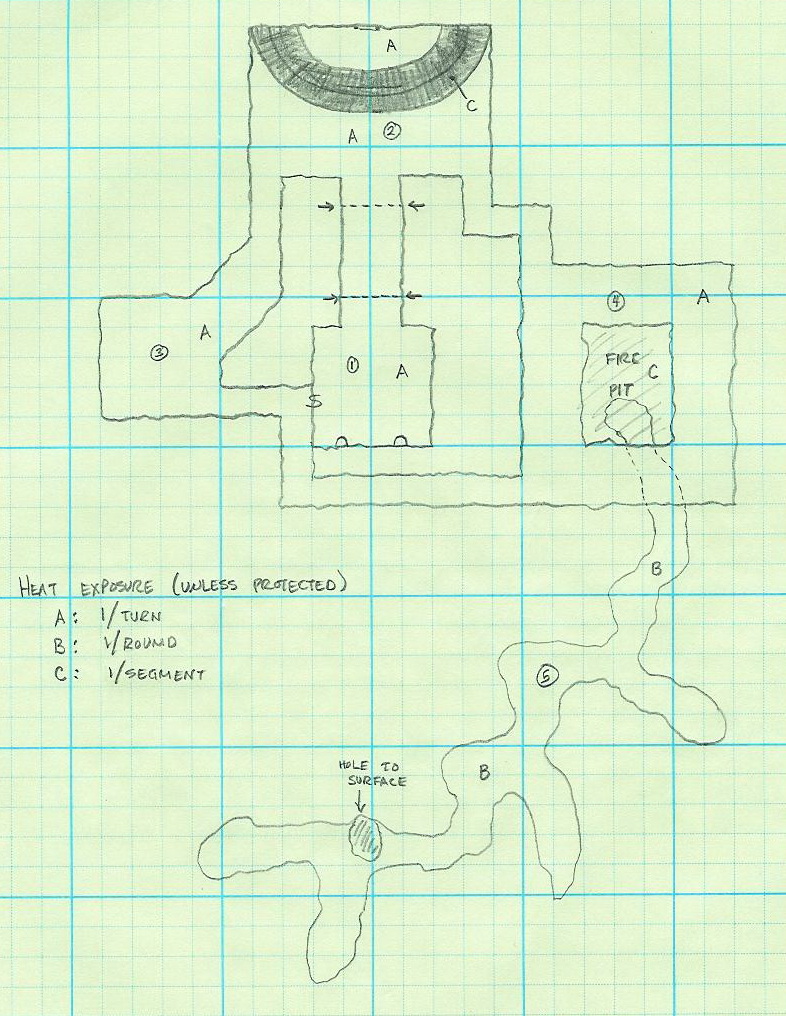 A
C
A ②
④ A
A
③
① A
FIRE C
PIT
S
B
HEAT EXPOSURE (UNLESS PROTECTED)
A: 1/TURN
B: 1/ROUND
C: 1/SEGMENT
⑤
HOLE TO
SURFACE
B